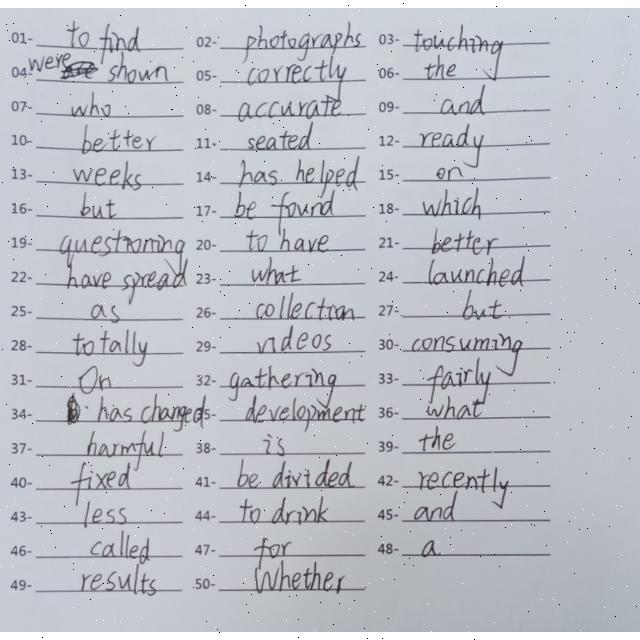 01- to find 02- photographs 03- touching
04- were shown 05- correctly 06- the
07- who 08- accurate 09- and
10- better 11- seated 12- ready
13- weeks 14- has helped 15- on
16- but 17- be found 18- which
19- questioning 20- to have 21- better
22- have spread 23- what 24- launched
25- as 26- collection 27- but
28- totally 29- videos 30- consuming
31- On 32- gathering 33- fairly
34- has changed 35- development 36- what
37- harmful 38- is 39- the
40- fixed 41- be divided 42- recently
43- less 44- to drink 45- and
46- called 47- for 48- a
49- results 50- Whether